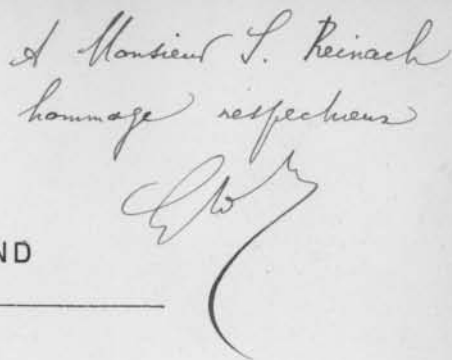 A Monsieur S. Reinach
hommage respectueux
ND